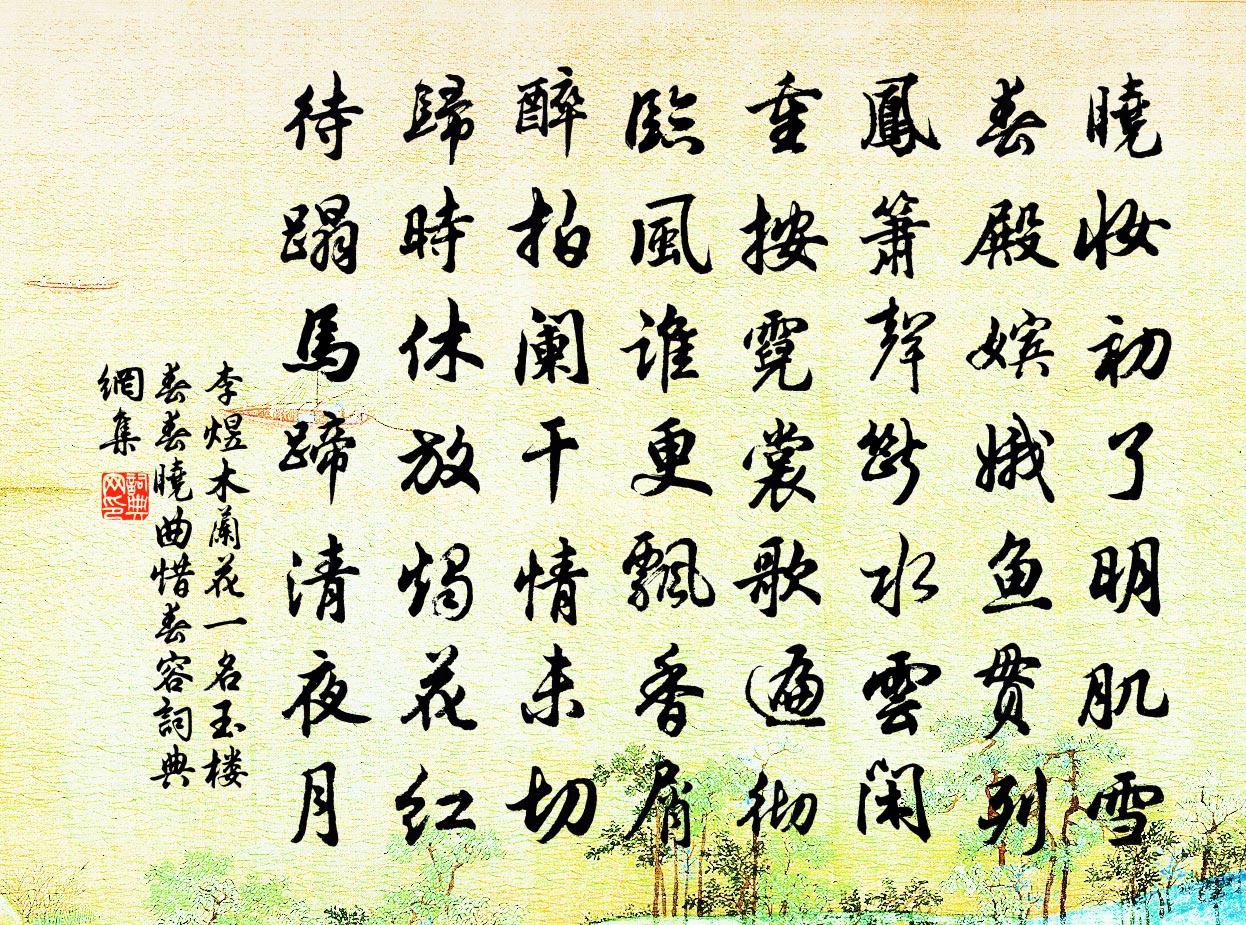 曉妝初了明肌雪
春殿嬪娥魚貫列
鳳簫聲斷水雲閑
重按霓裳歌遍彻
臨風誰更飄香屑
醉拍阑干情未切
歸時休放燭花红
待蹋馬蹄清夜月
李煜木蘭花一名玉楼
春春曉曲惜春容詞典
網集
詞典
网印